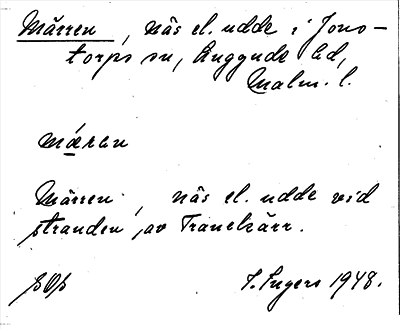 Märren, näs el. udde i Jons-
torps sn, Luggude hd,
Malm. l.
märan
Märren, näs el. udde vid
stranden av Tranekärr.
S. Ingers 1948.